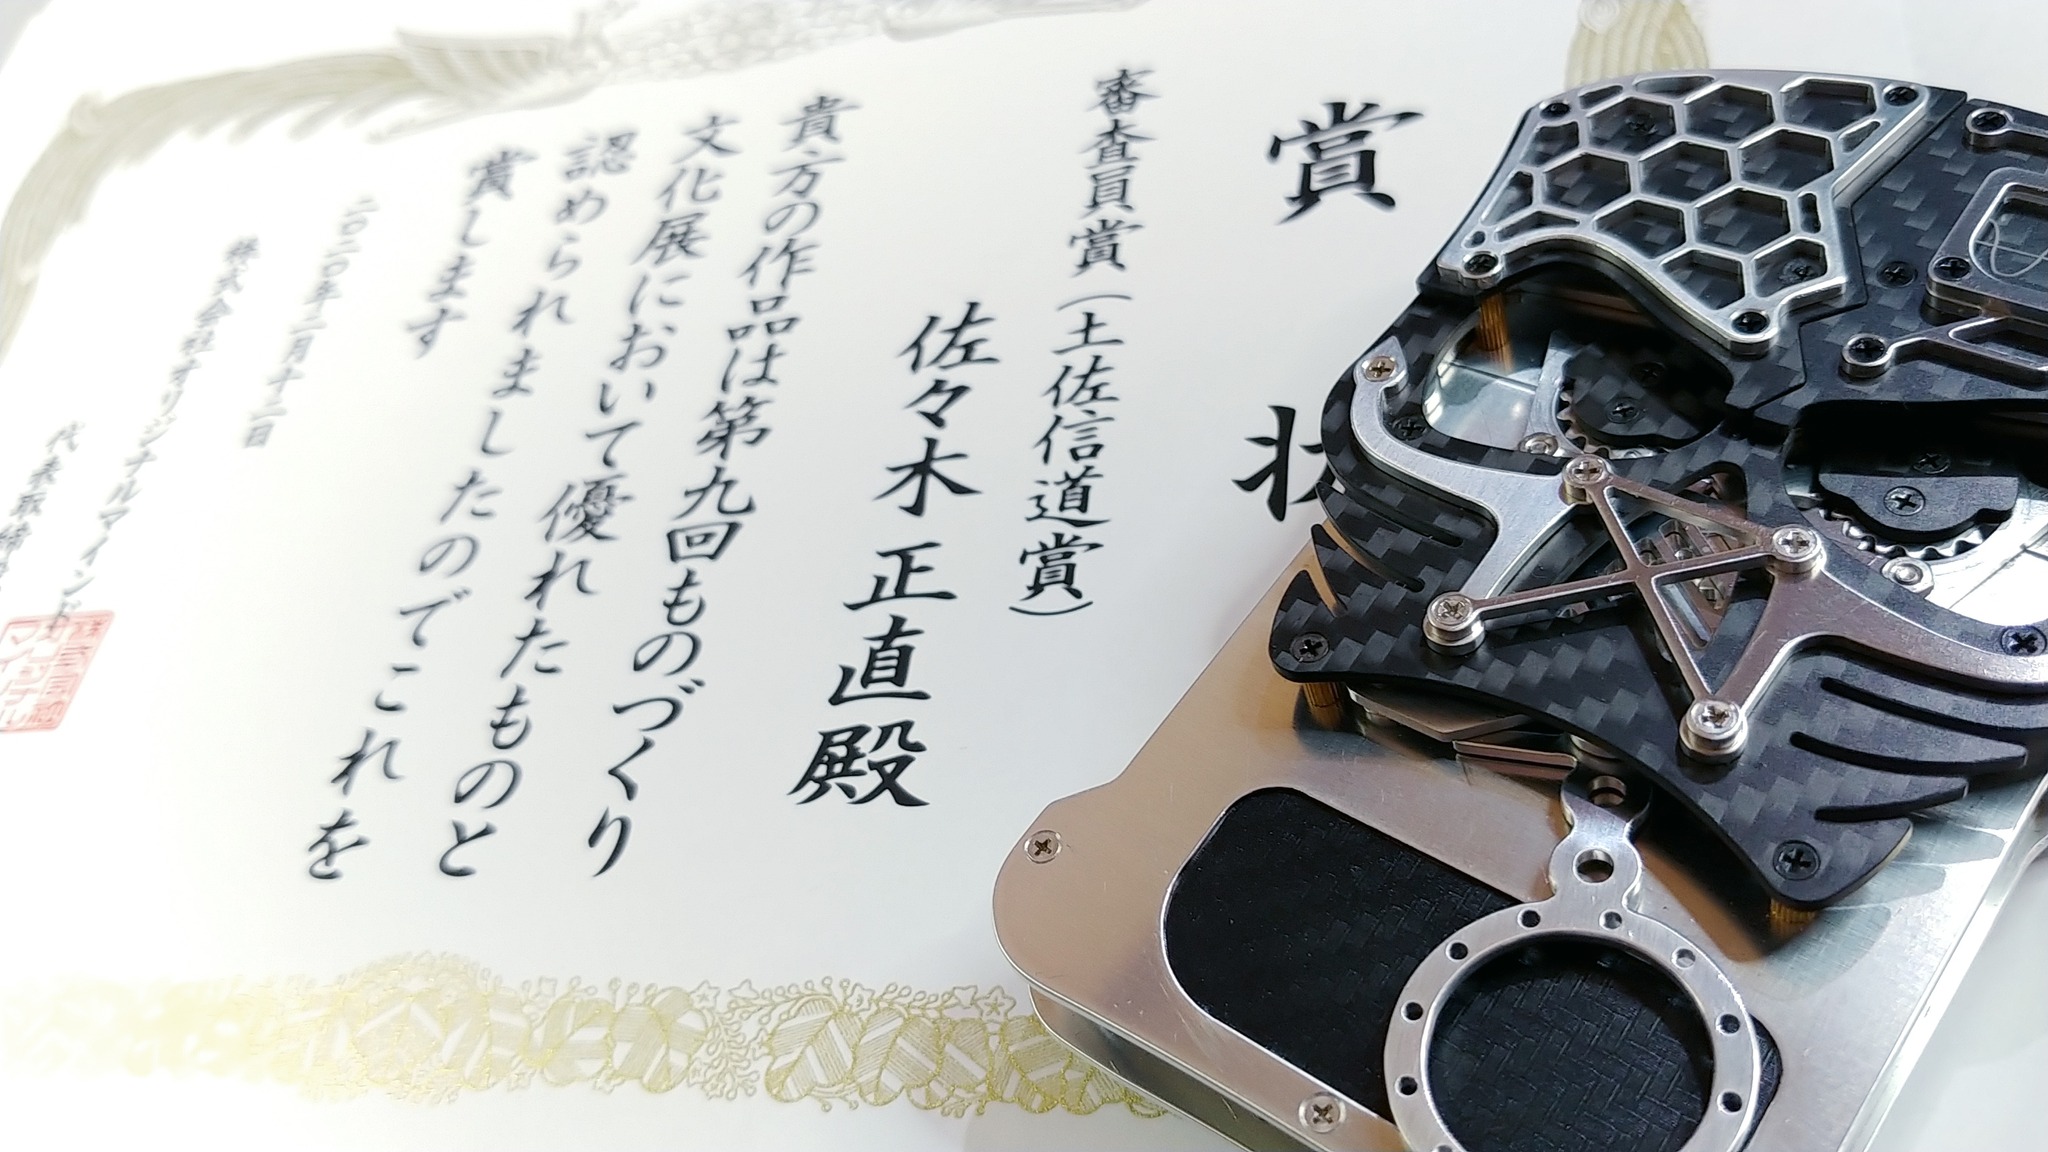 賞状
審査員賞(土佐信道賞)
佐々木正直殿
貴方の作品は第九回ものづくり
文化展において優れたものと
認められましたのでこれを
賞します
二〇二〇年二月十二日
株式会社オリジナルマインド
代表取締